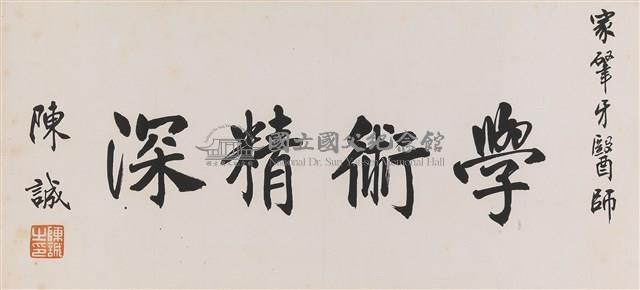 家肈牙醫師
學術精深
陳誠
陳誠之印
國立國父紀念館
National Dr. Sun Yat-sen Memorial Hall